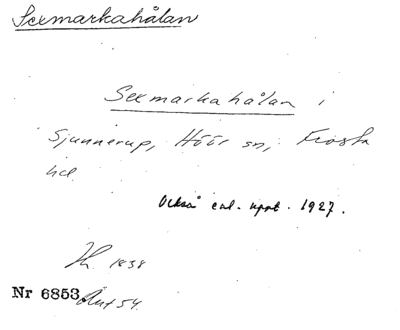 Sexmarkahålan
Sexmarkahålan i
Sjunnerup, Höör sn, Frosta
hd
Också enl. uppt. 1927.
1838
Nr 6853